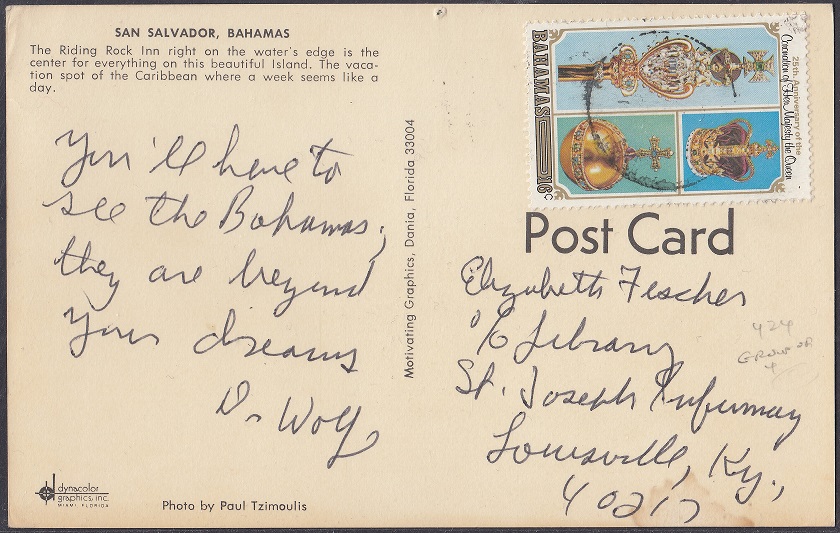 SAN SALVADOR, BAHAMAS
The Riding Rock Inn right on the water's edge is the
center for everything on this beautiful Island. The vaca-
tion spot of the Caribbean where a week seems like a
day.
You'll have to
see the Bahamas;
they are beyond
your dreams
D. Wolf
dynacolor
graphics, inc.
MIAMI, FLORIDA
Photo by Paul Tzimoulis
Motivating Graphics, Dania, Florida 33004
BAHAMAS 18c
25th Anniversary of the
Coronation of Her Majesty the Queen
Post Card
Elizabeth Fescher
c/o Library
St. Joseph Infirmary
Louisville, Ky.,
40217
424